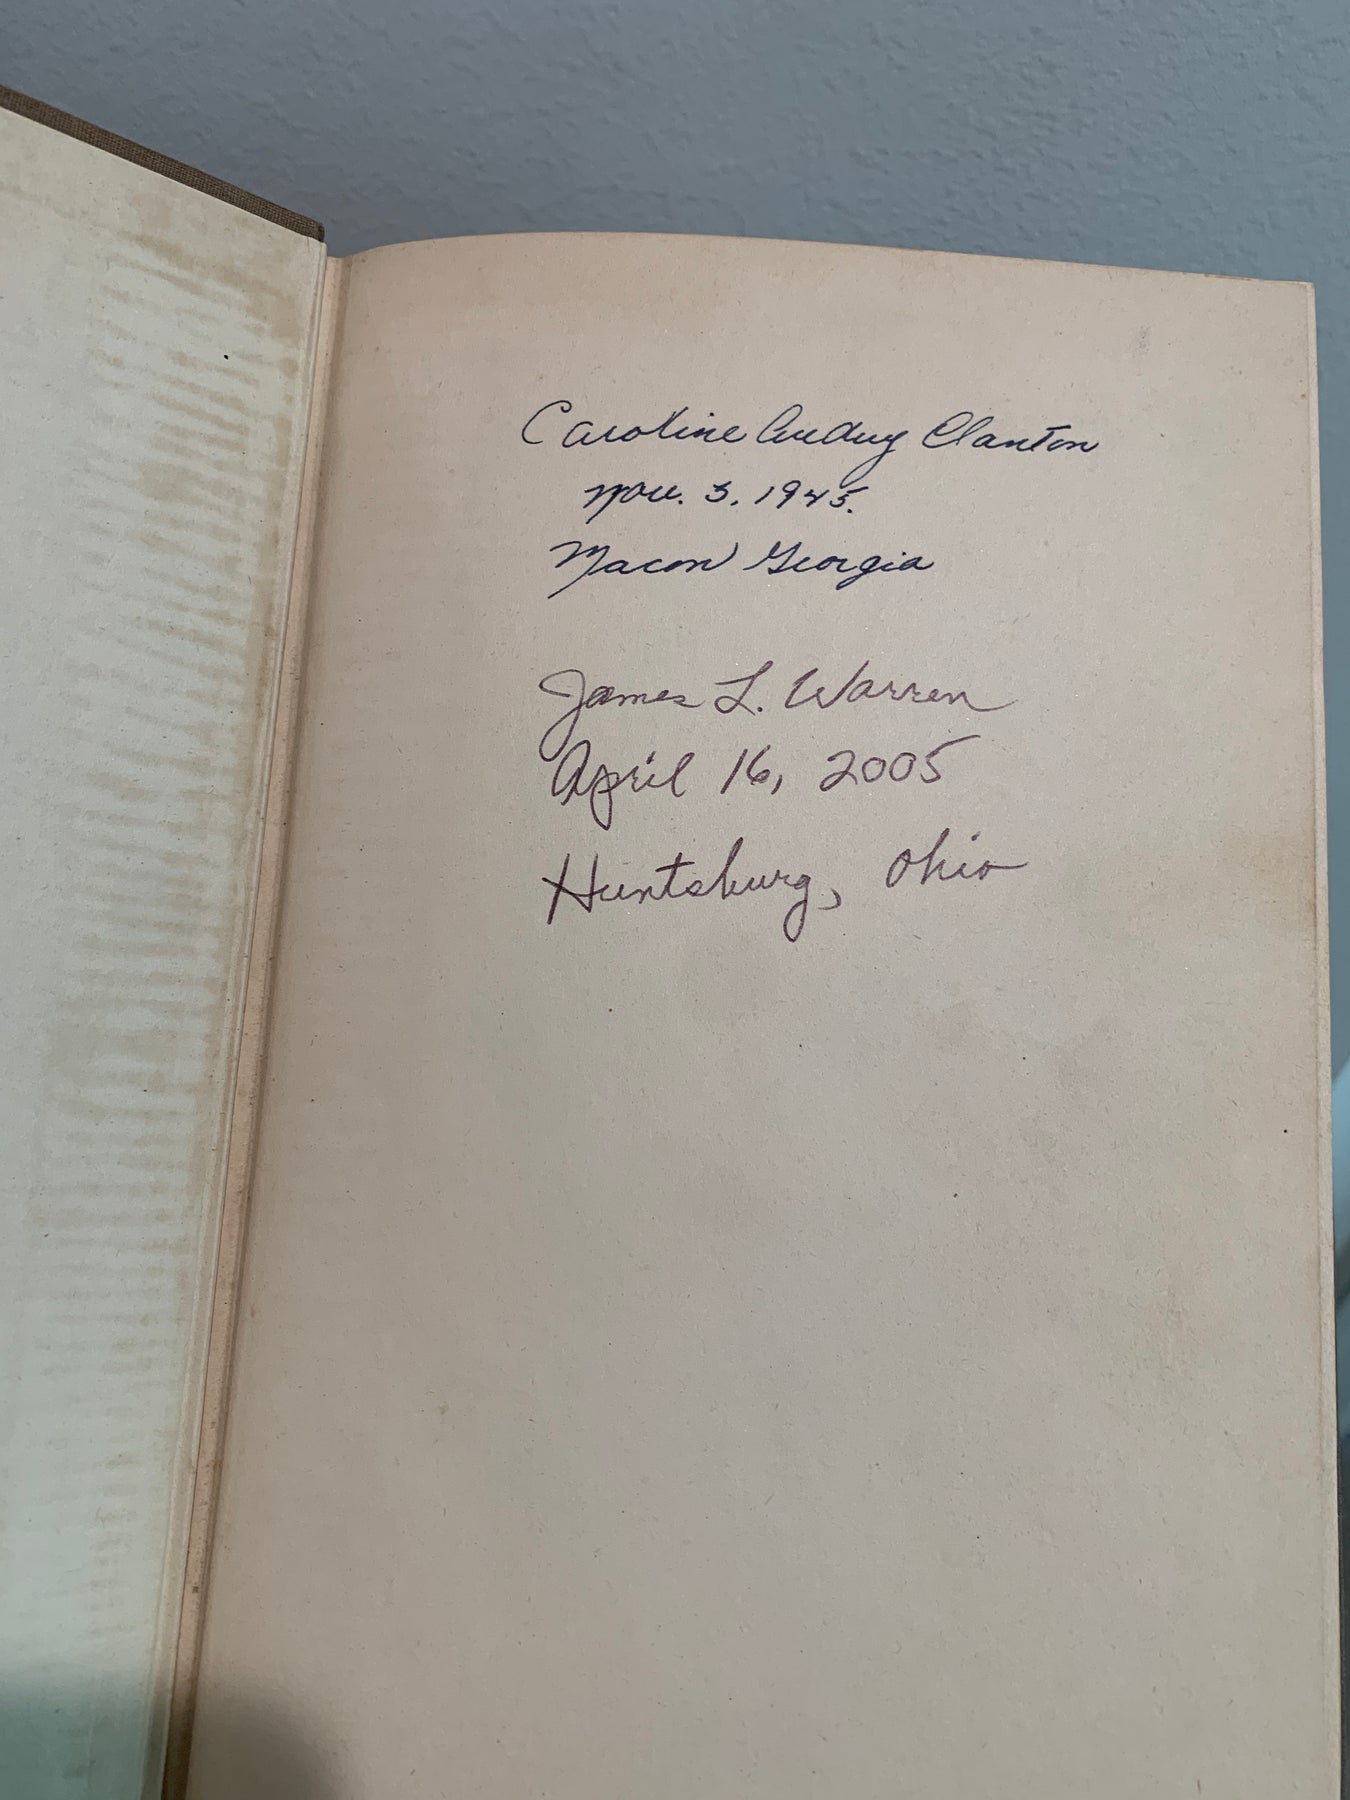 Caroline Audry Clanton
Nov. 3. 1945.
Macon Georgia
James L. Warren
April 16, 2005
Huntsburg, Ohio